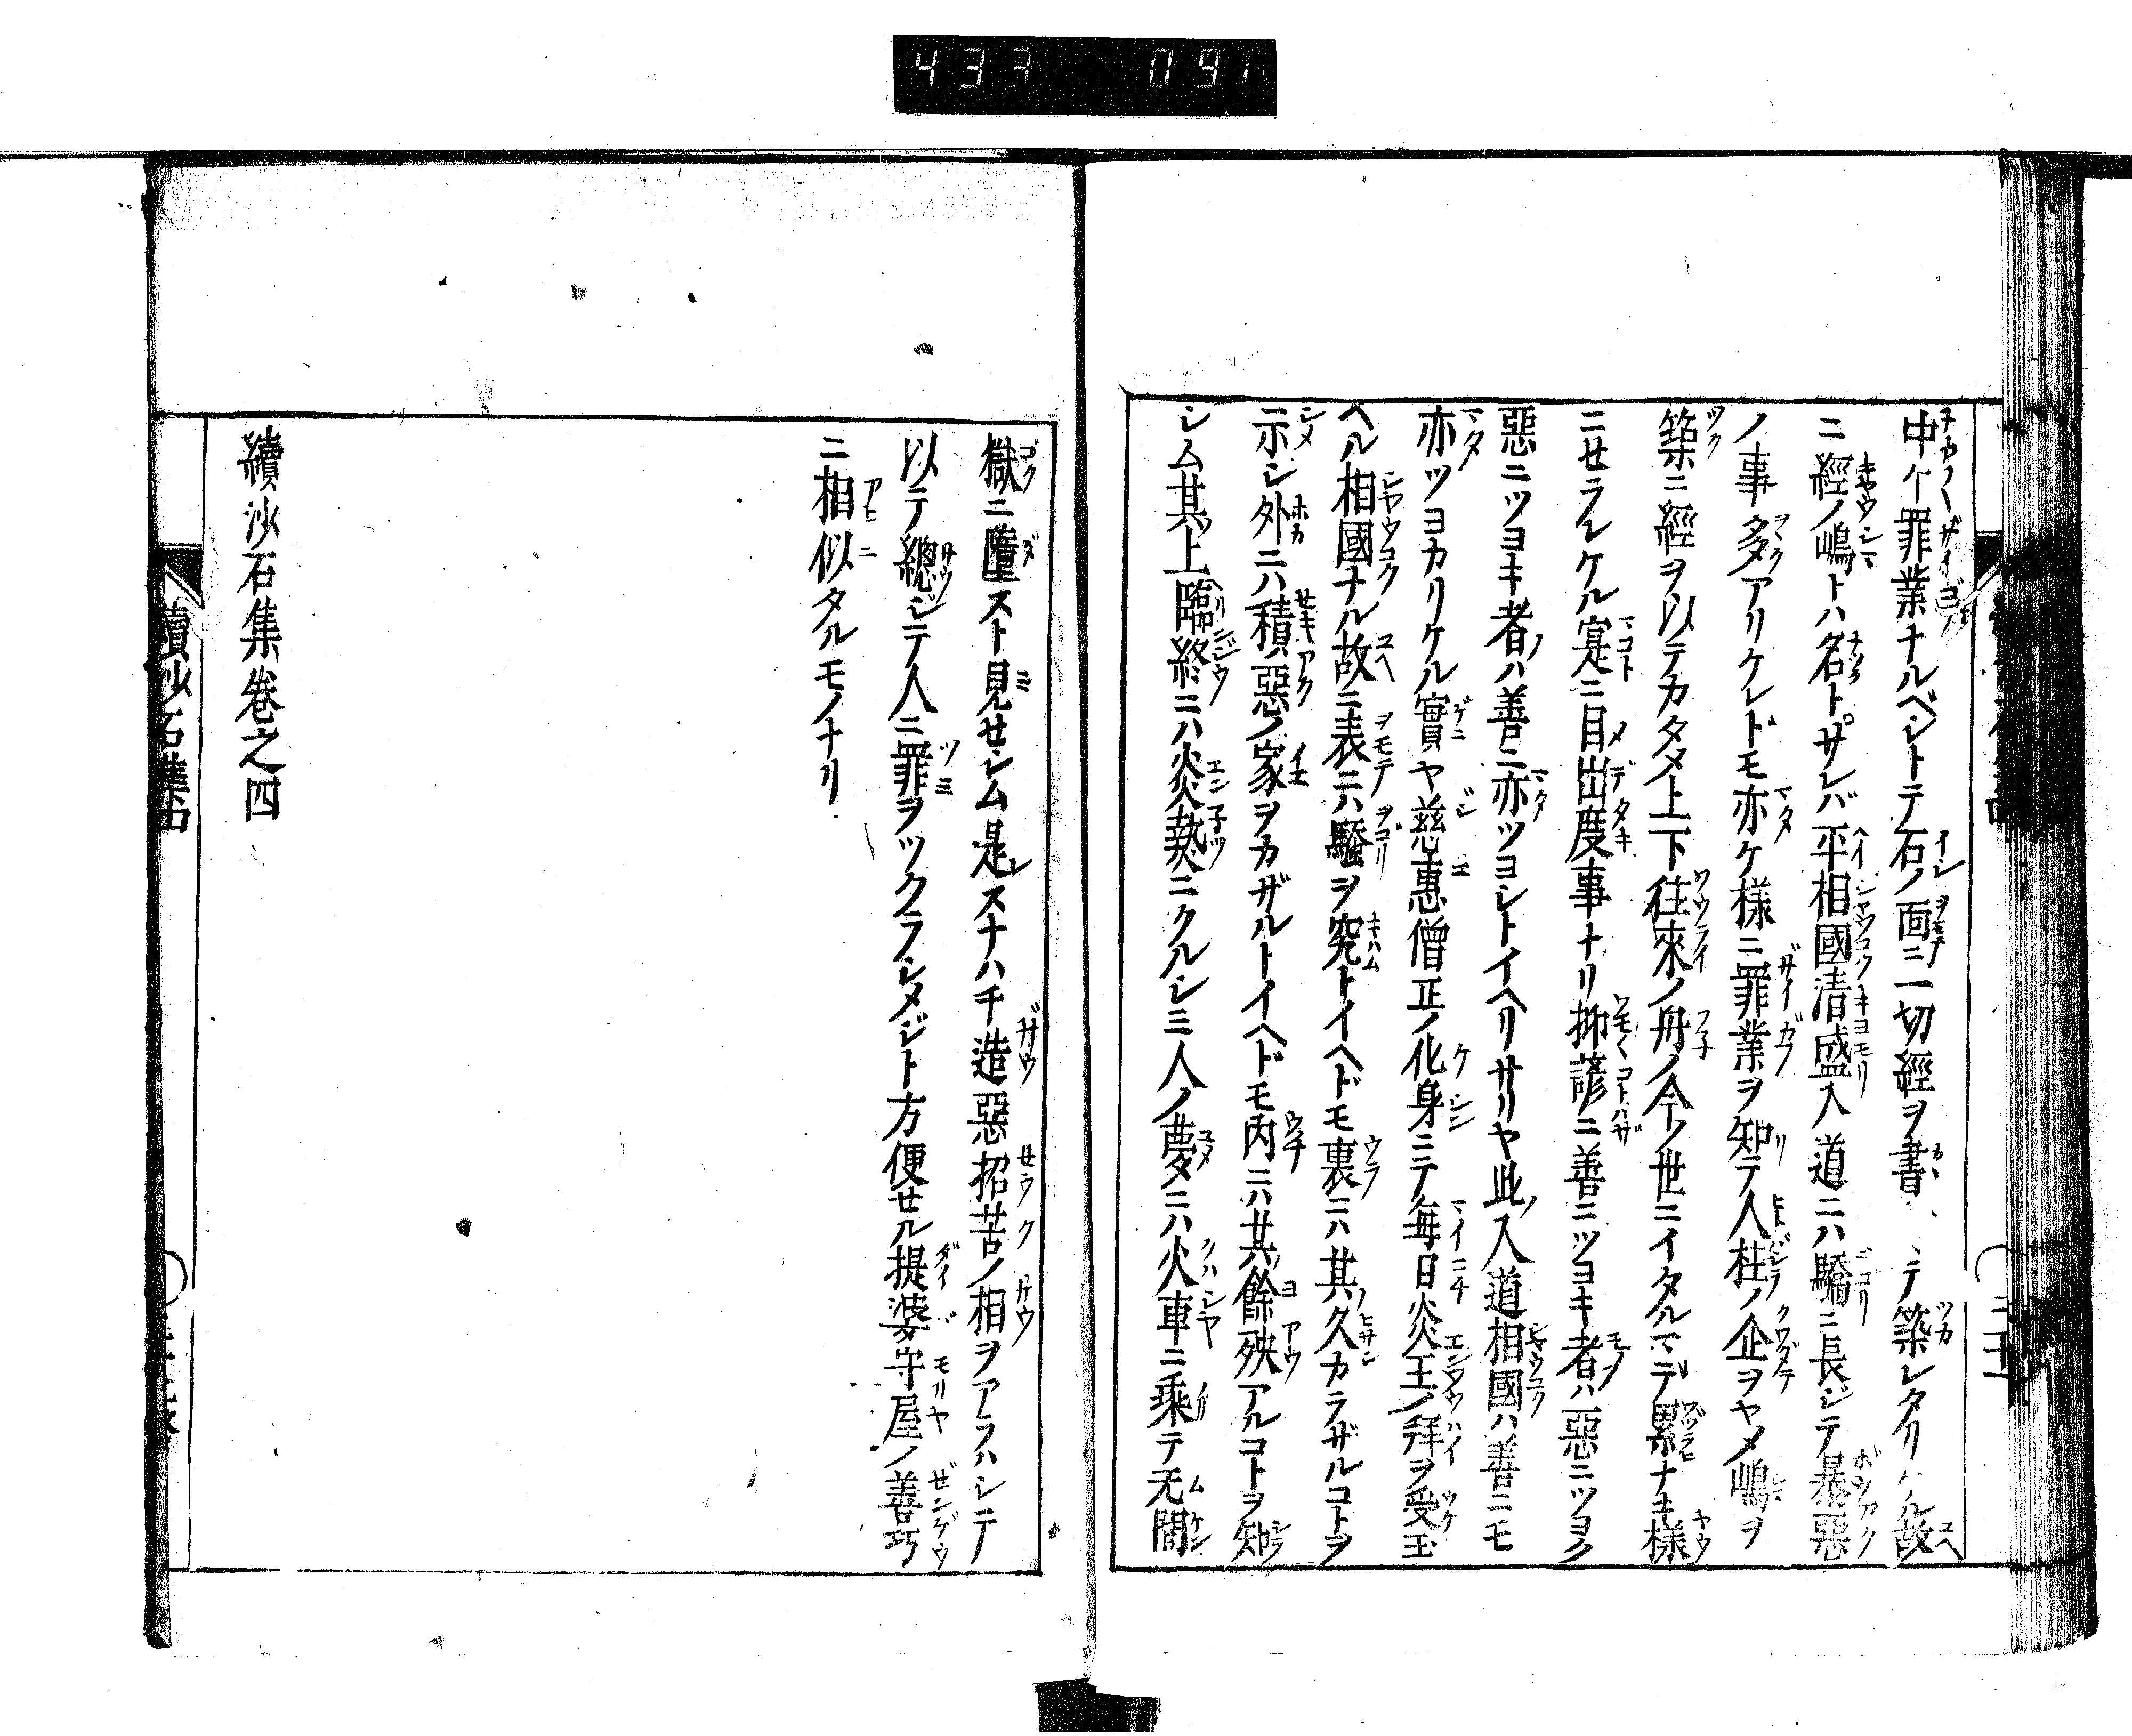 433 091
中〱罪業ナルベシトテ石ノ面ニ一切經ヲ書ヽテ築レタリケル故
ニ經ノ嶋トハ名ト。サレバ平相國清盛入道ニハ驕ニ長ジテ暴惡
ノ事多アリケレドモ亦ケ様ニ罪業ヲ知テ人柱ノ企ヲヤメ嶋ヲ
築ニ經ヲ以テカタタ上下往來ノ舟ノ今ノ世ニイタルマデ累ナキ様
ニセラルケル寔ニ目出度事ナリ抑諺ニ善ニツヨキ者ハ惡ニツヨク
惡ニツヨキ者ハ善ニ亦ツヨシトイヘリサリヤ此ノ入道相國ハ善ニモ
亦ツヨカリケル實ヤ慈惠僧正ノ化身ニテ毎日炎王ノ拜ヲ受玉
ヘル相國ナル故ニ表ニハ驕ヲ究トイヘドモ裏ニハ其久カラザルコトヲ
示シ外ニハ積惡ノ家ヲカザルトイヘドモ内ニハ其餘殃アルコトヲ知
シム其上臨終ニハ炎熱ニクルシミ人ノ夢ニハ火車ニ乘テ无間
獄ニ墮スト見セシム是レスナハチ造惡招苦ノ相ヲアラハシニテ
以テ總ジテ人ニ罪ヲツクラシメジト方便セル提婆守屋ノ善巧
ニ相似タルモノナリ
續沙石集卷之四
續沙石集四